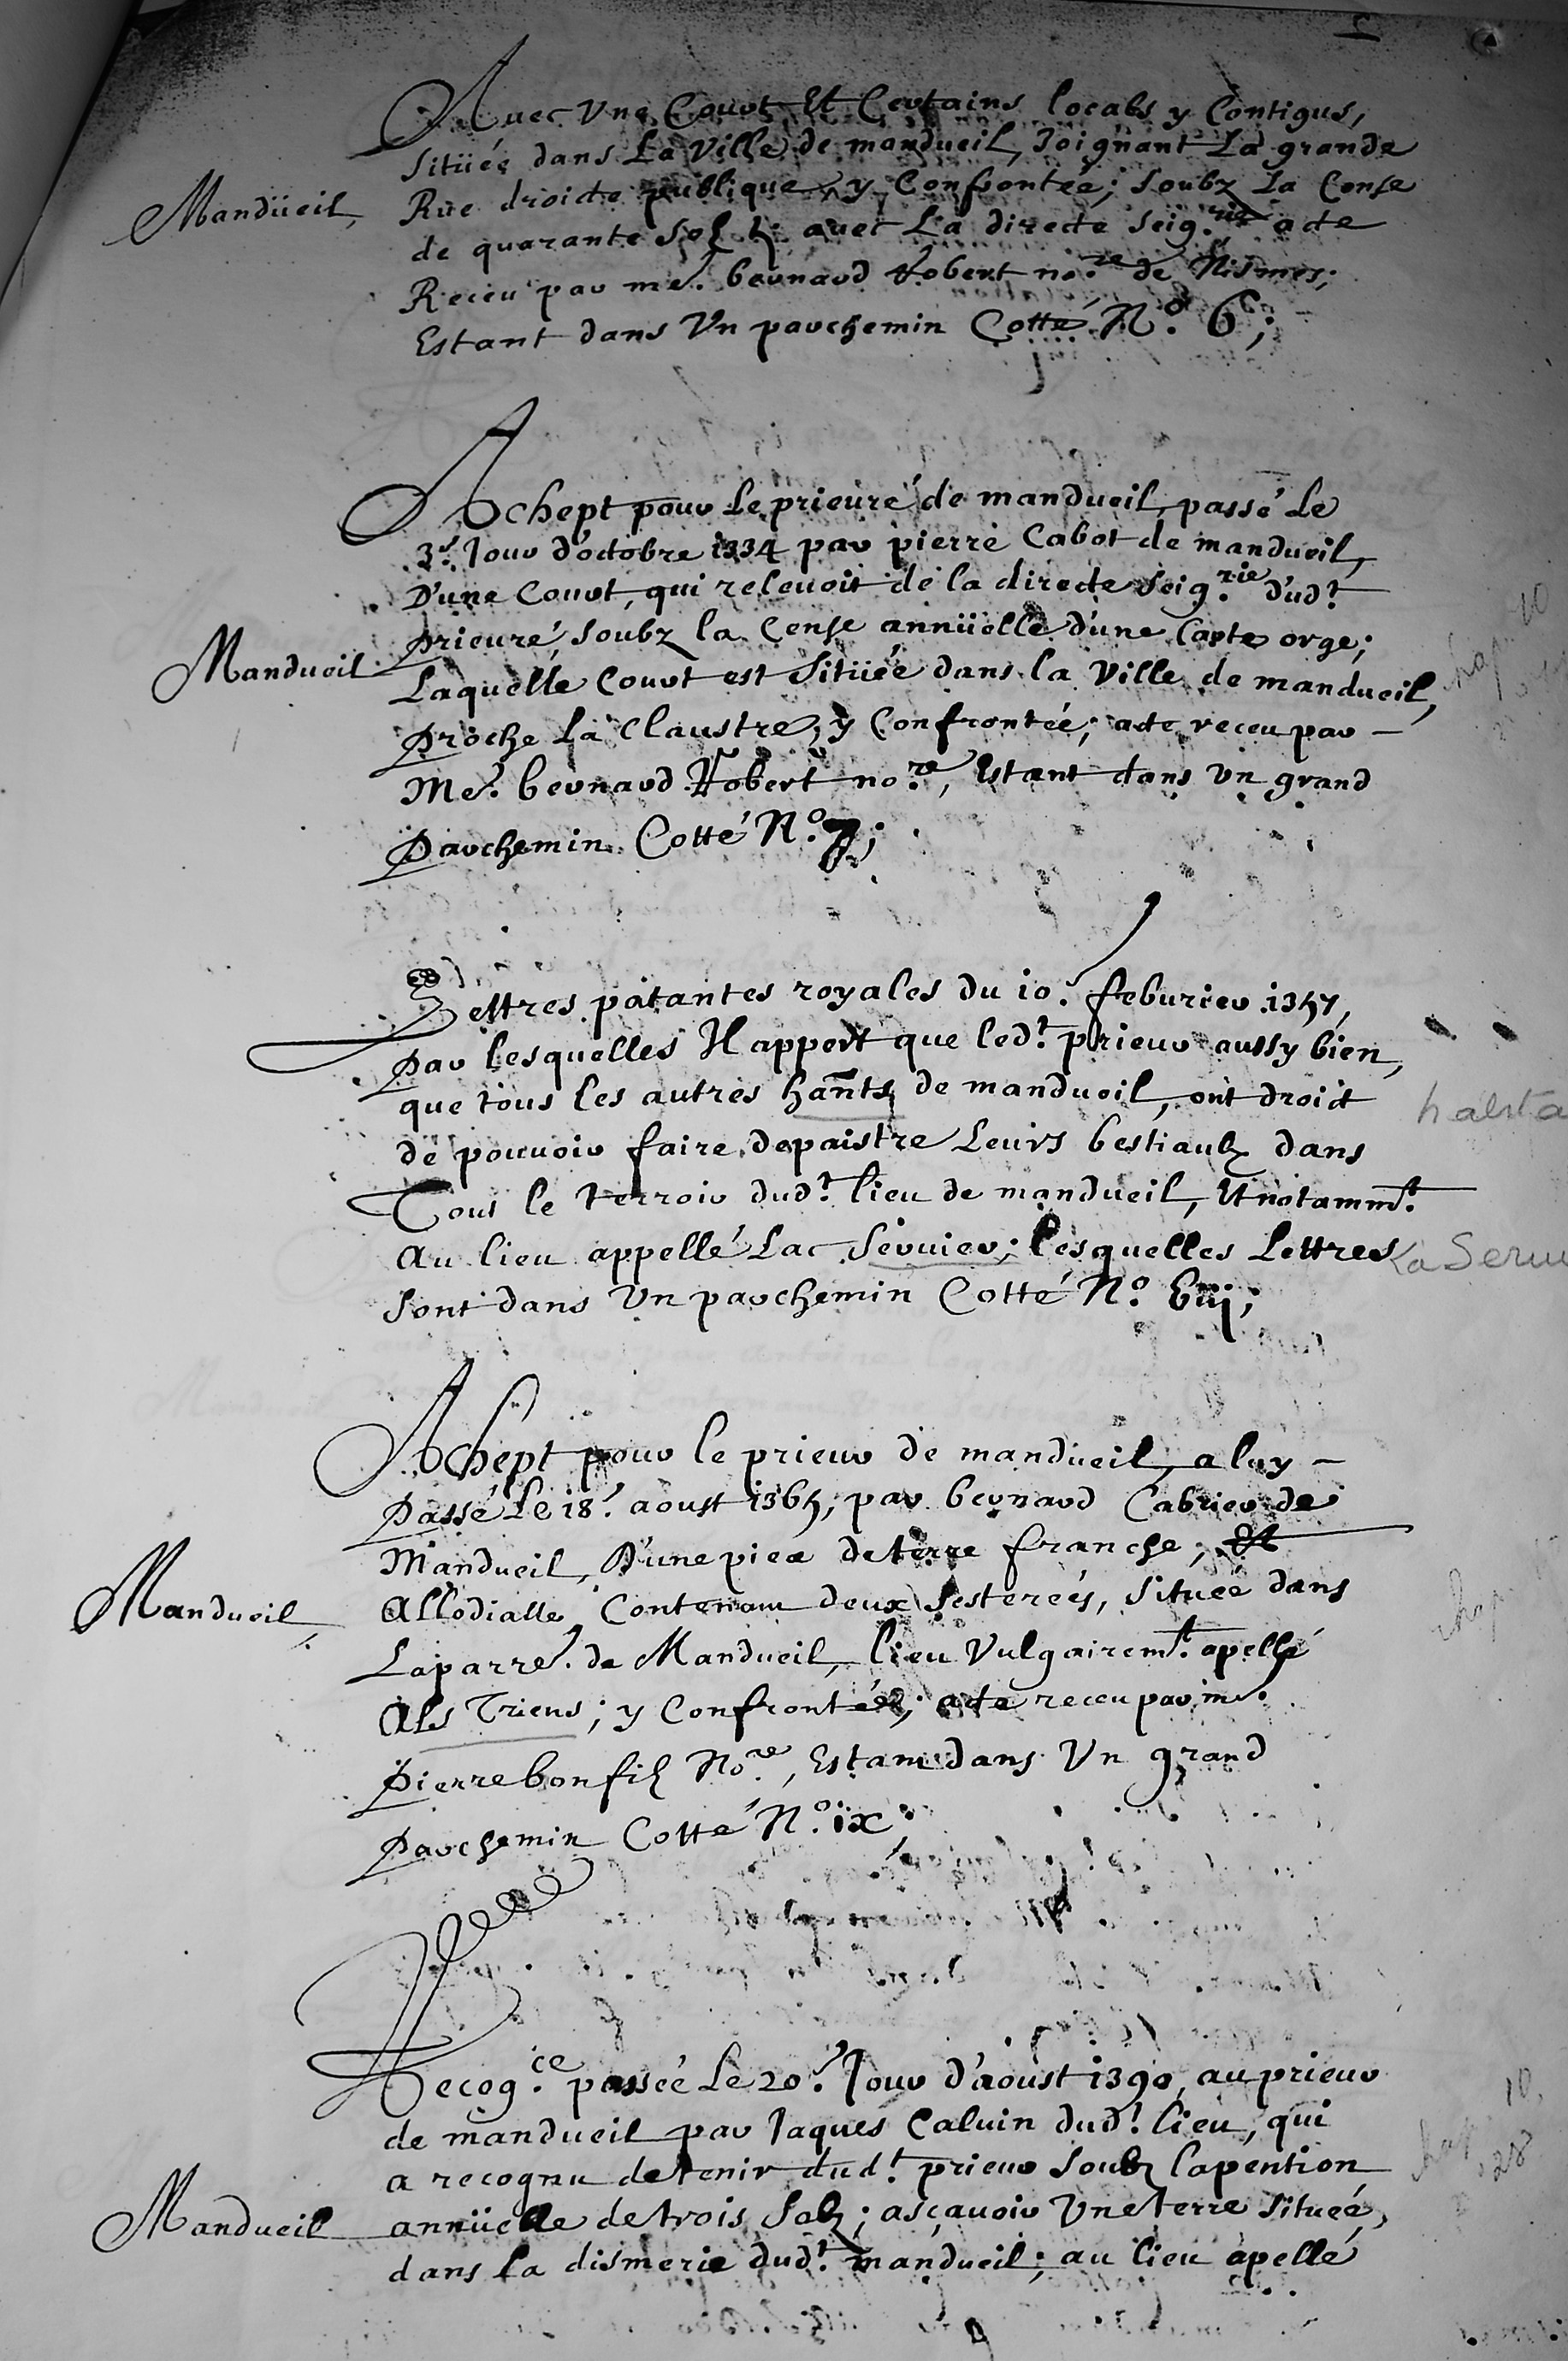 Auec Vne Court Et Certains locals y Contigus,
Sitüée dans La Ville de mandueil, Joignant La grande
Mandüeil, Rüe droicte publique, y Confrontée; soubz La Cense
de quarante solz t; auec La directe Seig.rie acte
Receu par me. bernard Robert no.re de Nismes;
Estant dans Vn parchemin Cotté N.o 6;
Achept pour Le prieuré de mandueil, passé Le
3.e Jour d'octobre 1334 par pierre Cabot de mandueil,
D'une Court, qui releuoit de la directe seig.rie dud.t
Mandueil prieuré, soubz la Cense annüelle d'une Carte orge;
Laquelle Court est Sitüée dans la Ville de mandueil,
proche La Claustre, y Confrontée; acte receu par
Me. bernard Robert no.re, Estant dans Vn grand
parchemin Cotté N.o 7;
Lettres patantes royales du 10.e feburier 1357,
par lesquelles Il appert que led.t prieur aussy bien,
que tous les autres hants de mandueil, ont droict
de pouuoir faire depaistre Leurs bestiaulz dans
Tout le terroir dud.t lieu de mandueil, Et notamm.t
Au lieu appellé Lac Seruier; lesquelles Lettres
sont dans Vn parchemin Cotté N.o Viij;
Achept pour le prieur de mandueil, a luy
passé Le 18.e aoust 1365, par bernard Cabrier de
Mandueil, D'une piece de terre franche, Et
Mandueil, Allodialle, Contenant deux sesterées, située dans
Laparre. de Mandueil, lieu Vulgairem.t apellé
Als Triens; y Confrontée; acte receu par me.
Pierre bonfilz No.re, Estant dans Vn grand
parchemin Cotté N.o ix;
Recog.ce passée Le 20.e Jour d'aoust 1390, au prieur
de mandueil par Jaques Caluin dud.t lieu, qui
a recognu de tenir dud.t prieur soubz la pention
Mandueil annüelle de trois solz; asçauoir Vne terre située,
dans la dismerie dud.t mandueil; au lieu apellé